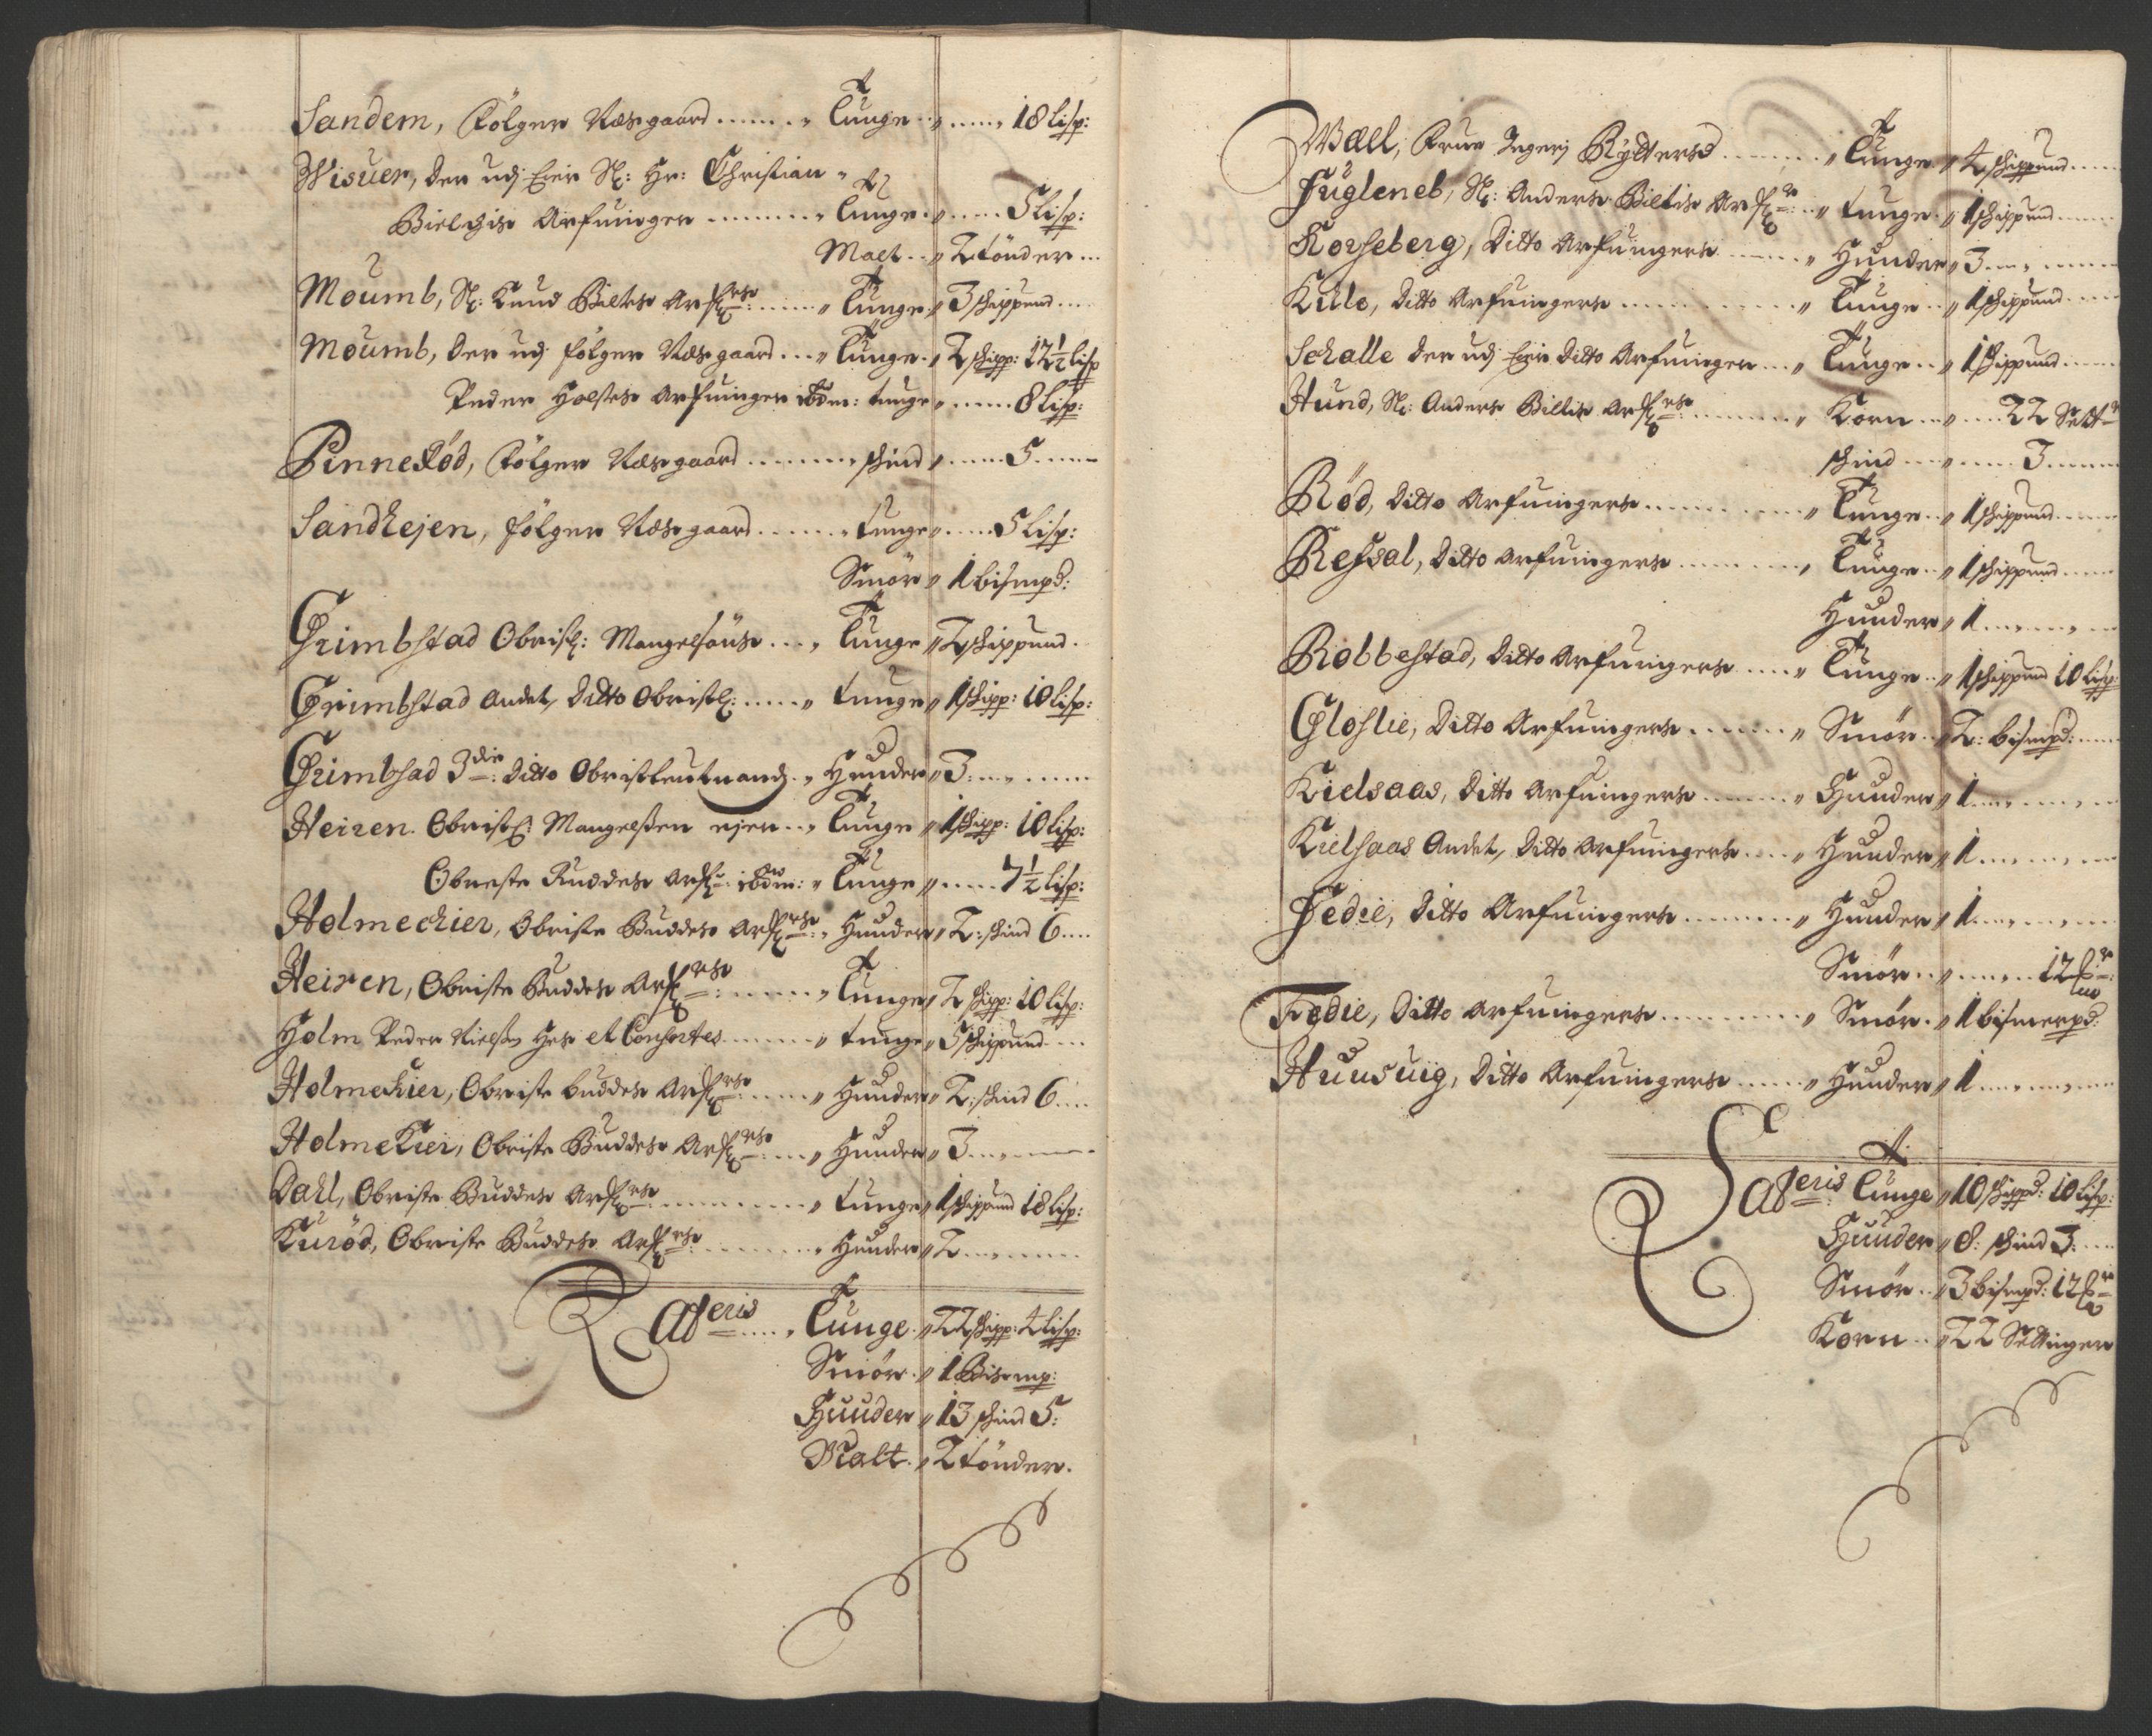 Sandem, Fölger Næsgaard ........ „ Tunge „ ...... 18 Lisp:
Wisuer, der udj Eier Sl: Hr: Christian
Bielchis Arfuinger ......... „ Tunge „ ..... 5 Lisp:
Malt .. „ 2 tönder ...
Moumb, Sl: Knud Biltes Arfl: rs: ...... „ Tunge „ 3 schippund ....
Moumb, der udj fölger Næsgaard ... „ Tunge „ 2 schipp: 12½ lisp
Peder Holstes Arfuinger ibdm: tunge „ ...... 8 lisp:
Pinneröd, Fölger Næsgaard ......... schind „ ...... 5 ......
Sandhejen, fölger Næsgaard ....... „ tunge „ ..... 5 lisp:
Smör „ 1 bismpd:
Grimbstad Obristl: Mangelsöns ... „ Tunge „ 2 schippund
Grimbstad Andet, Ditto Obristl: ..... „ tunge „ 1 schipp: 10 lisp:
Grimbsad 3die: Ditto Obristleutnandz .. „ Huuder „ 3 ..........
Heiren Obristl: Mangelßen ejer ... „ Tunge „ 1 schipp: 10 lisp:
Obriste Buddes Arfl: ibdm: „ Tunge „ ..... 7½ lisp:
Holmechier, Obriste Buddes Arfl rs: .. „ Huuder „ 2: schind 6 ....
Heiren, Obriste Buddes Arfl rs: ........ „ Tunge „ 2 schipp: 10 lisp:
Holm Peder Nielßen Hes et Consortes ....... „ tunge „ 5 schippund ....
Holmekier, Obriste Buddes Arfl rs: ..... „ Huuder „ 2: schind 6 ....
Holmekier, Obriste Buddes Arfl rs: .... „ Huuder „ 3 ..........
Dahl, Obriste Buddes Arfl rs: ........... „ tunge „ 1 schippund 18 lisp:
Kuröd, Obriste Buddes Arfl rs: ......... „ Huuder „ 2 ..........
Lateris ..... „ Tunge „ 22 schipp: 4 lisp:
Smör „ 1 Bismp:
Huuder „ 13 schind 5:
Malt „ 2 tönder.
Wæll, Frue Rytters ......... „ Tunge „ 4 schippund ......
Fugleneb, Sl: Anders Biltis Arfl rs: .. „ tunge „ 1 schippund ......
Korseberg, Ditto Arfuingers ...... „ Huuder „ 3 ..........
Kihle, Ditto Arfuingers ............ „ Tunge „ 1 schippund .....
Schalle der udj Eier Ditto Arfuinger ... „ Tunge „ 1 schippund ......
Hund, Sl: Anders Biltis Arfl rs: ......... „ Korn ... „ .... 22 Sett r
schind .... „ ...... 3 ......
Röd, Ditto Arfuingers ............ „ Tunge „ 1 schippund ......
Refsal, Ditto Arfuingers .......... „ Tunge „ 1 schippund ......
Huuder „ 1 ..........
Robbestad, Ditto Arfuingers ..... „ Tunge „ 1 schippund 10 lisp:
Gloslie, Ditto Arfuingers ....... „ Smör „ 2: bismpd: .....
Kielsaas, Ditto Arfuingers ........ „ Huuder „ 1 ..........
Kielsaas Andet, Ditto Arfuingers .... „ Huuder „ 1 ..........
Fedie, Ditto Arfuingers ......... „ Huuder „ 1 ..........
Smör ... „ ...... 12
Fedie, Ditto Arfuingers ........... „ Smör „ 1 bismerpd:
Huusuig, Ditto Arfuingers ...... „ Huuder „ 1 ..........
Lateris Tunge „ 10 schippd: 10 lisp:
Huuder „ 8: schind 3: ....
Smör .. „ 3 bismpd: 12
Korn .. „ 22 Settinger